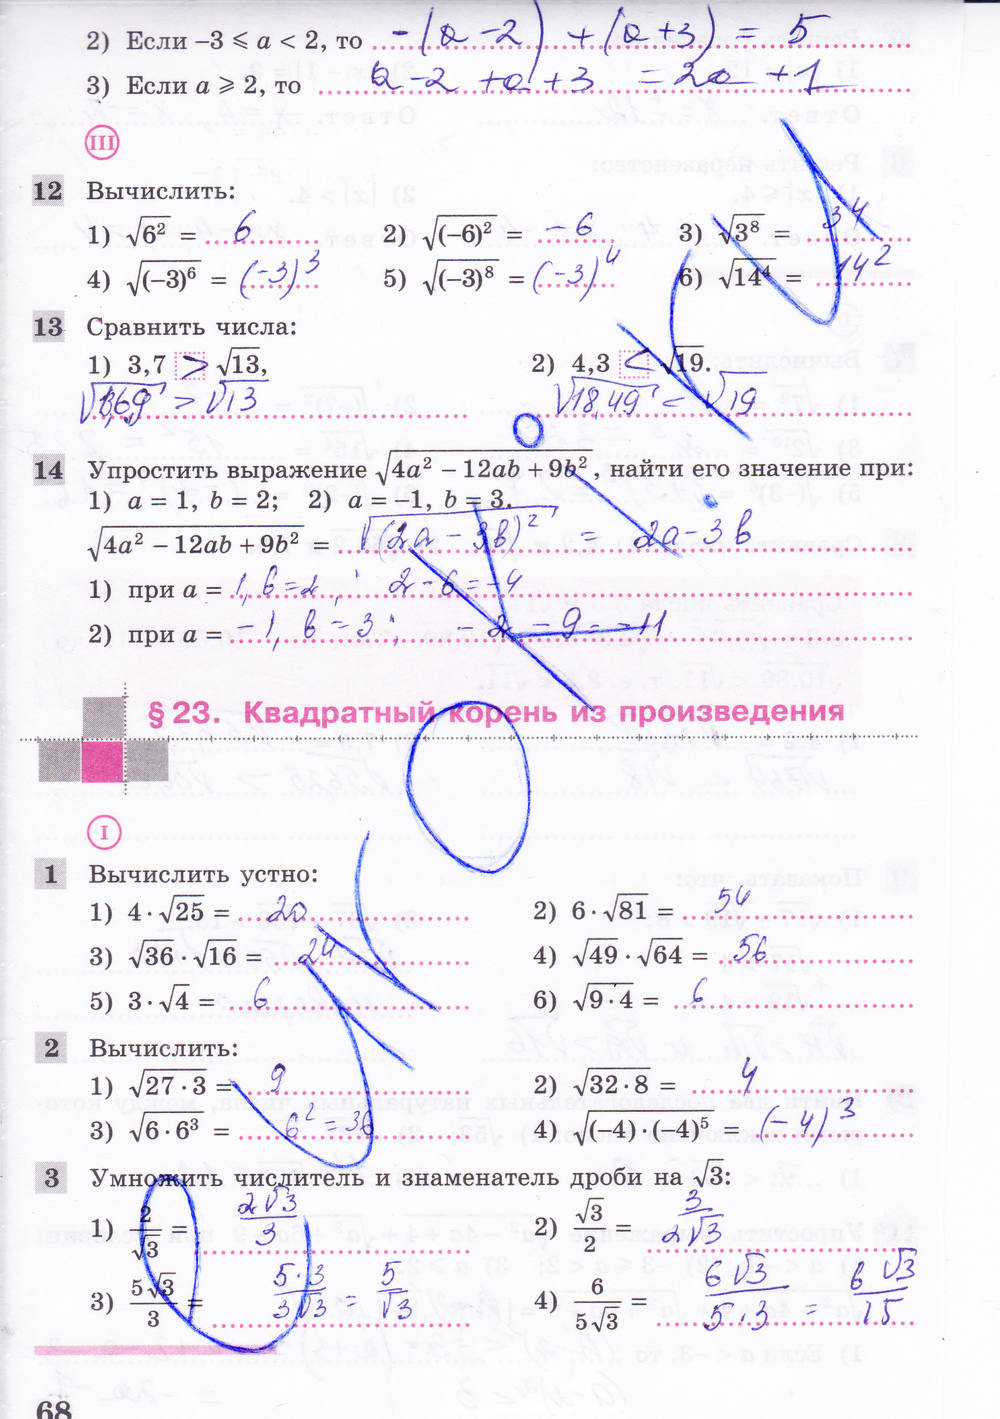 2) Если –3 ⩽ a < 2, то -(a-2) + (a+3) = 5
3) Если a ⩾ 2, то a-2 +a+3 = 2a+1
III
12 Вычислить:
1) √6² = 6 2) √(–6)² = -6 3) √3⁸ = 3⁴
4) √(–3)⁶ = (-3)³ 5) √(–3)⁸ = (-3)⁴ 6) √14⁴ = 14²
13 Сравнить числа:
1) 3,7 > √13, 2) 4,3 < √19.
> √13 √18,49 < √19
14 Упростить выражение √4a² – 12ab + 9b², найти его значение при:
1) a = 1, b = 2; 2) a = –1, b = 3.
√4a² – 12ab + 9b² = √(2a - 3b)² = 2a-3b
1) при a = 1, b=2; 2-6=-4
2) при a = -1, b=3; -2-9=-11
§ 23. Квадратный корень из произведения
I
1 Вычислить устно:
1) 4 · √25 = 20 2) 6 · √81 = 54
3) √36 · √16 = 24 4) √49 · √64 = 56
5) 3 · √4 = 6 6) √9 · 4 = 6
2 Вычислить:
1) √27 · 3 = 9 2) √32 · 8 = 4
3) √6 · 6³ = 6² = 36 4) √(–4) · (–4)⁵ = (-4)³
3 Умножить числитель и знаменатель дроби на √3:
1) 2/√3 = 2√3/3 2) √3/2 = 3/2√3
3) 5√3/3 = 5·3/3√3 = 5/√3 4) 6/5√3 = 6√3/5·3 = 6√3/15
68